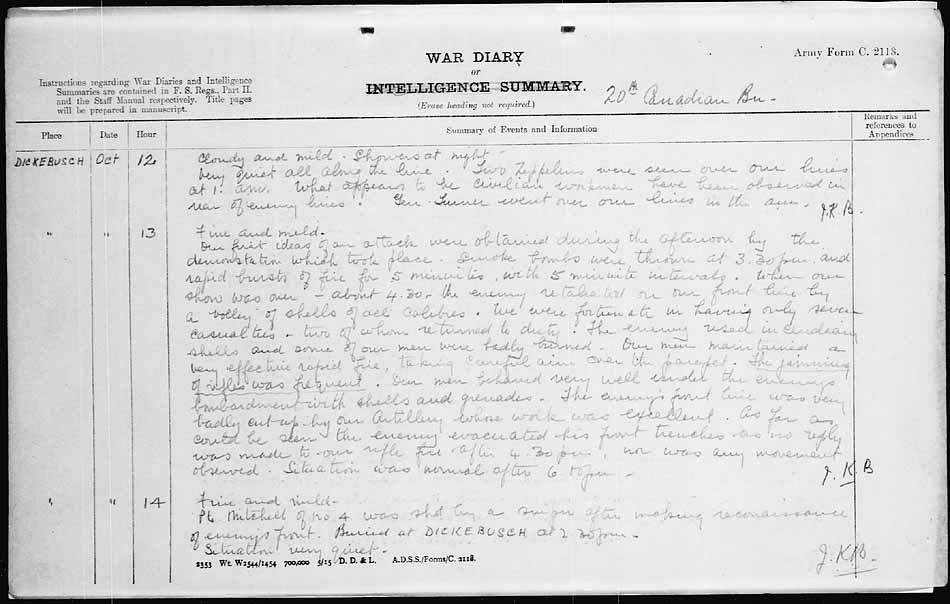 WAR DIARY
or
INTELLIGENCE SUMMARY.
(Erase heading not required.)
Army Form C. 2118.
20th Canadian Bn-
Instructions regarding War Diaries and Intelligence
Summaries are contained in F. S. Regs., Part II.
and the Staff Manual respectively. Title pages
will be prepared in manuscript.
Place Date Hour Summary of Events and Information Remarks and references to Appendices
DICKEBUSCH Oct 12 Cloudy and mild. Showers at night -
Very quiet all along the line. Two Zeppelins were seen over our lines
at 1. a.m. What appears to be civilian workmen have been observed in
rear of enemy lines. Gen. Turner went over our lines in the a.m. J.K.B.
" " 13 Fine and mild.
Our first ideas of an attack were obtained during the afternoon by the
demonstation which took place. Smoke bombs were thrown at 3.30 p.m. and
rapid bursts of fire for 5 minuites, with 5 minuite intervals. When our
show was over - about 4.30 - the enemy retaliated on our front line by
a volley of shells of all calibres. We were fortunate in having only seven
casualties - two of whom returned to duty. The enemy used incendiary
shells and some of our men were badly burned. Our men maintained a
very effective rapid fire, taking careful aim over the parapet. The jamming
of rifles was frequent. Our men behaved very well under the enemys
bombardment with shells and grenades. The enemys front line was very
badly cut up by our Artillery whose work was excellent. As far as
could be seen the enemy evacuated his front trenches as no reply
was made to our rifle fire after 4.30 p.m., nor was any movement
observed. Situation was normal after 6 p.m. J.K.B
" " 14 Fine and mild-
Pt. Mitchell of No. 4 was shot by a sniper after making reconaissance
of enemys front. Buried at DICKEBUSCH at 2.30 p.m.
Situation very quiet. J.K.B.
2353 Wt. W2544/1454 700,000 5/15 D. D. & L. A.D.S.S./Forms/C. 2118.